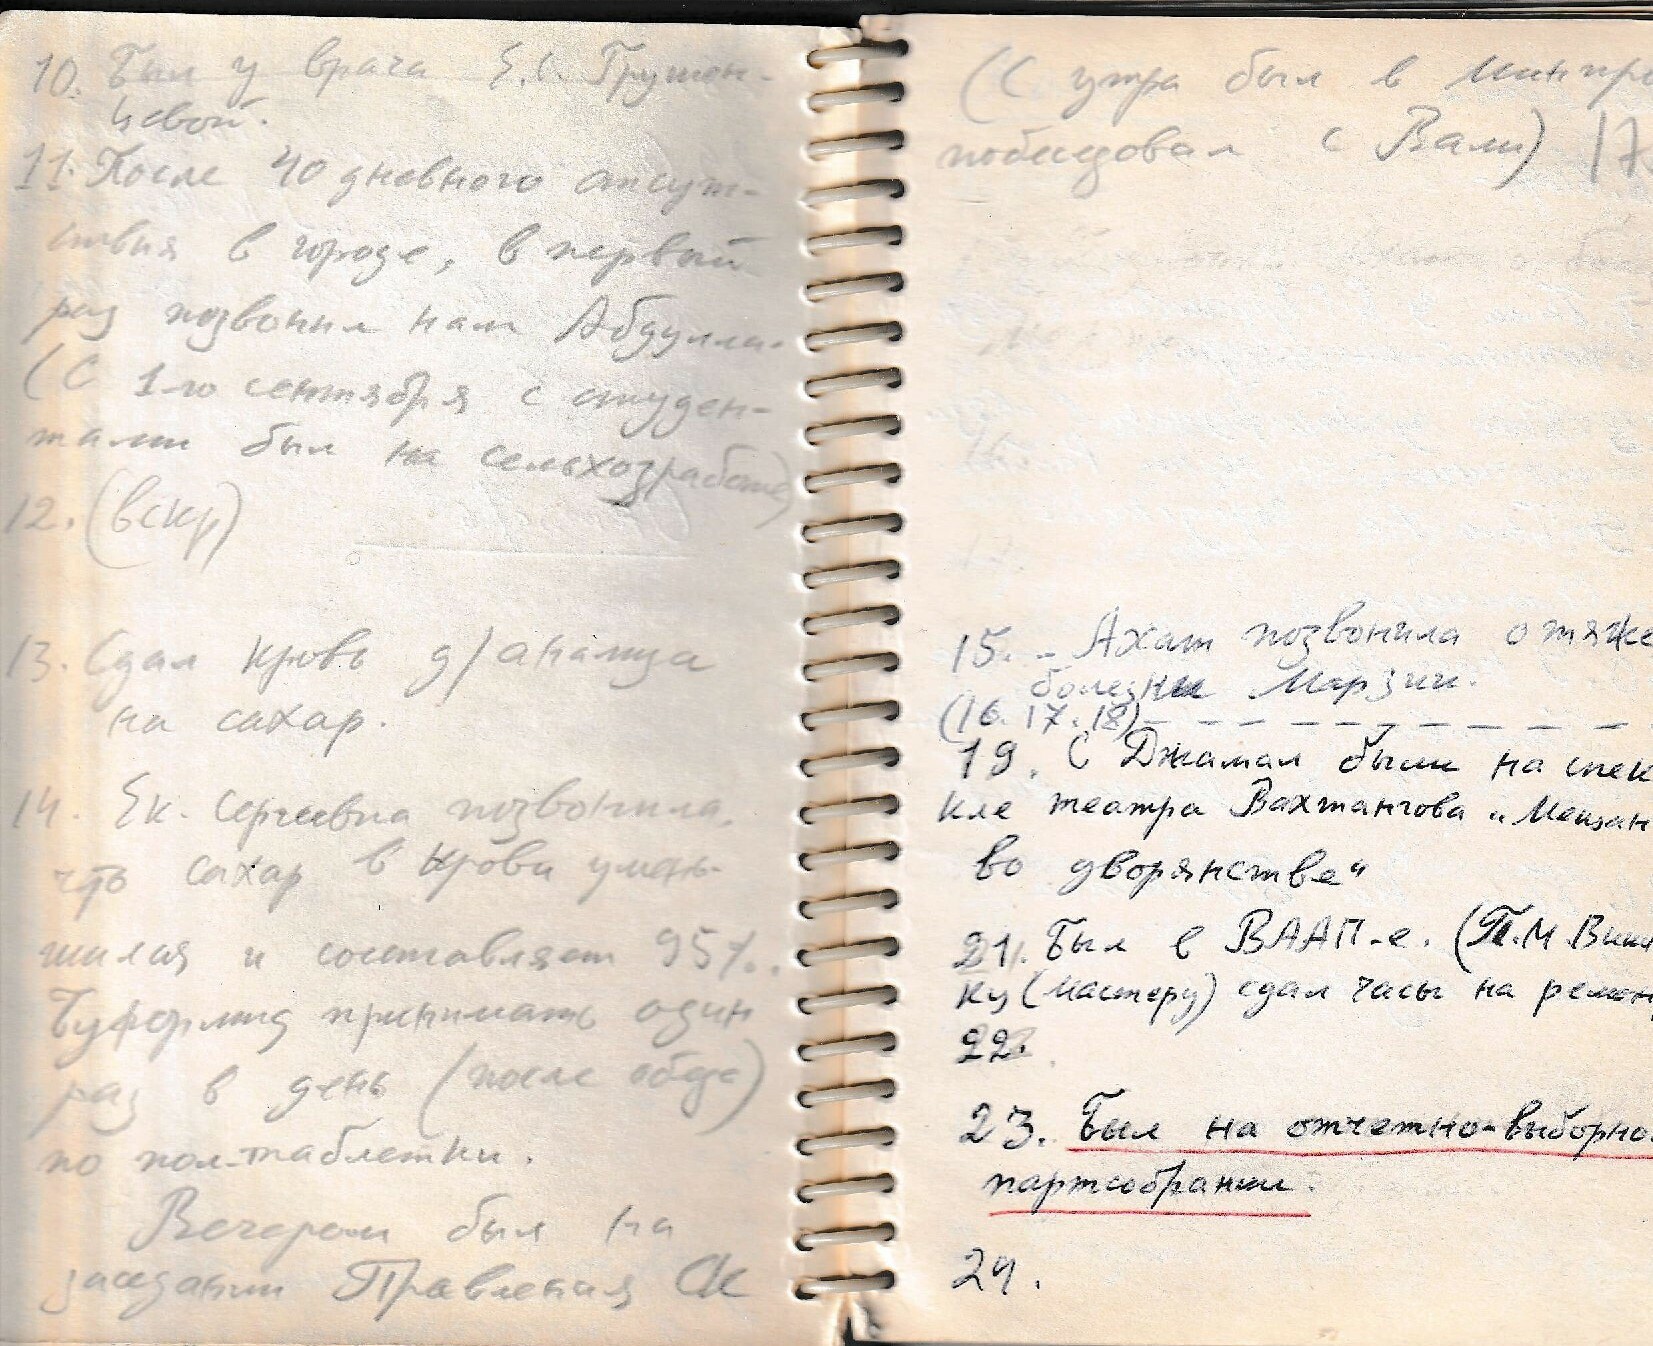 10. Был у врача Е.С. Грушен-
цевой.
11. После 40 дневного отсут-
ствия в городе, в первый
раз позвонил нам Абдулла.
(С 1-го сентября с студен-
тами был на сельхозработе)
12. (вскр)
13. Сдал кровь д/анализа
на сахар.
14. Ек. Сергеевна позвонила,
что сахар в крови умень-
шился и составляет 95%.
Буформид принимать один
раз в день (после обеда)
по пол-таблетки.
Вечером был на
заседании Правления СК
(С утра был в Минпр
побеседовал с Вами)
15. - Ахат позвонила о тяже
болезни Марзии.
(16. 17. 18)
19. С Джамал были на спек
кле театра Вахтангова „Мещан
во дворянстве"
21. Был в ВААП-е. (П.М.
ку (мастеру) сдал часы на ремон
22.
23. Был на отчетно-выборно
партсобрании.
24.